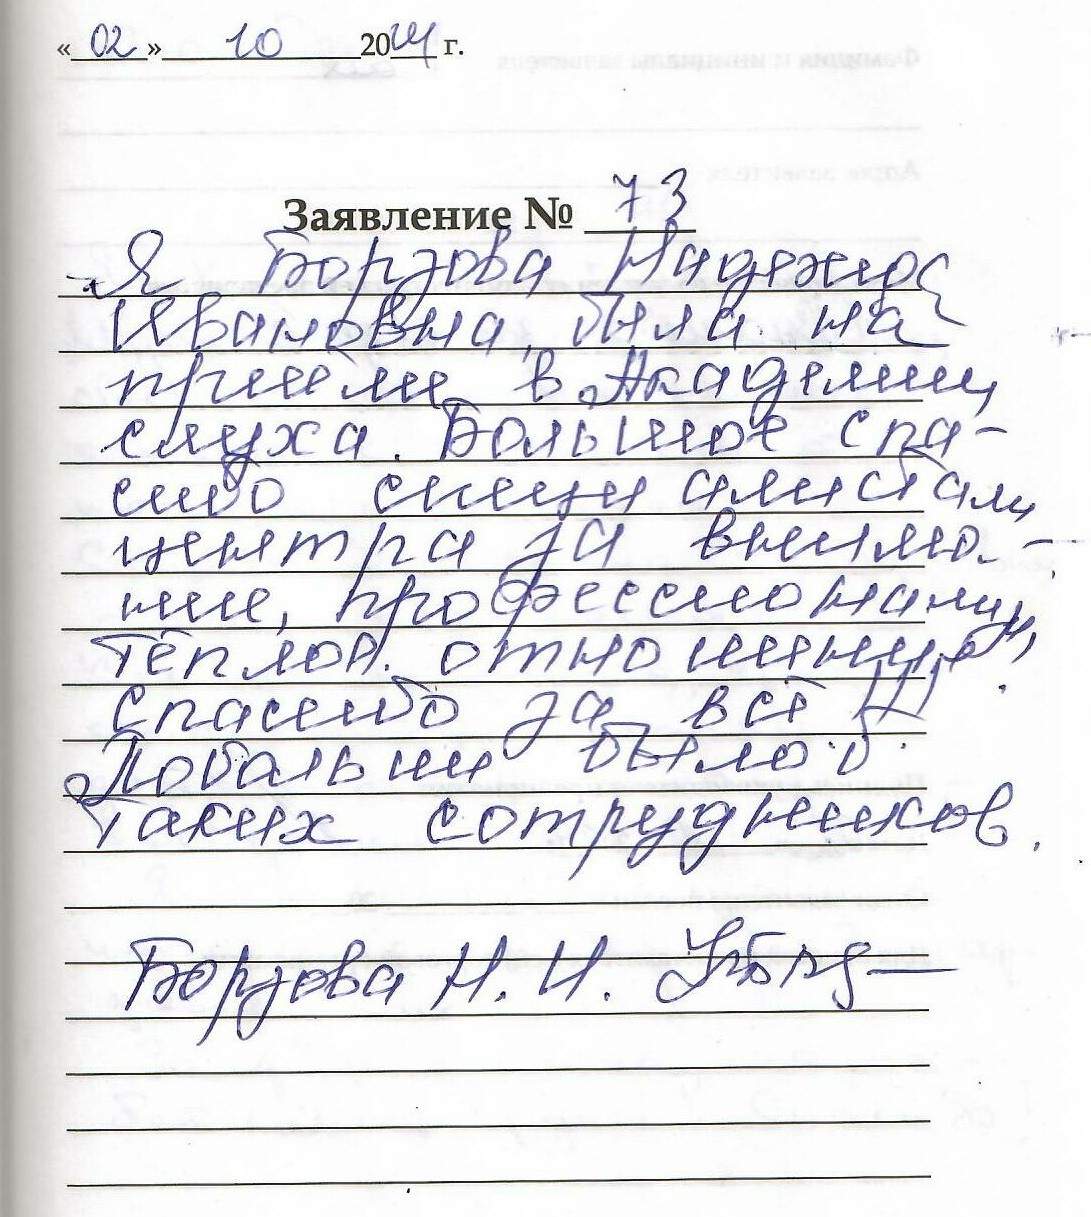 « 02 » 10 2024 г.
Заявление № 73
Я Борзова Надежда
Ивановна, была на
приёме в Академии
слуха. Большое спа-
сибо специалистам
центра за внима-
ние, профессионализм,
тёплое отношение,
спасибо за всё!!!
Побольше было б
таких сотрудников.
Борзова Н. И.